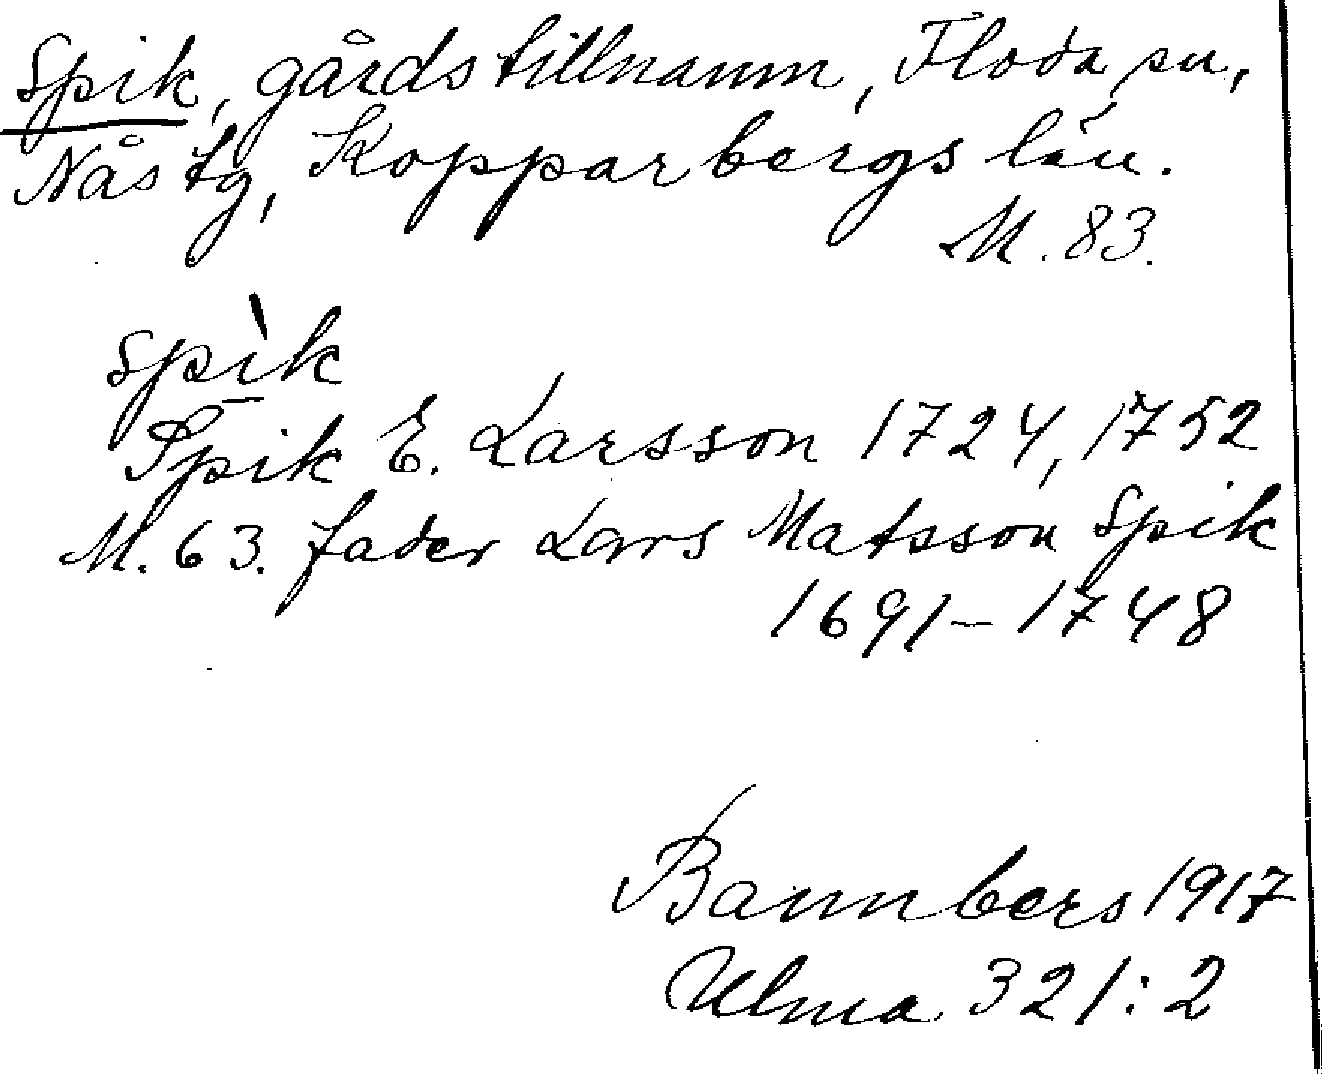 Spik, gårdstillnamn, Floda sn,
Nås tg, Kopparbergs län.
M. 83.
spìk
Spik E. Larsson 1724, 1752
M. 63. fader Lars Matsson Spik
1691–1748
Bannbers 1917
Ulma 321:2